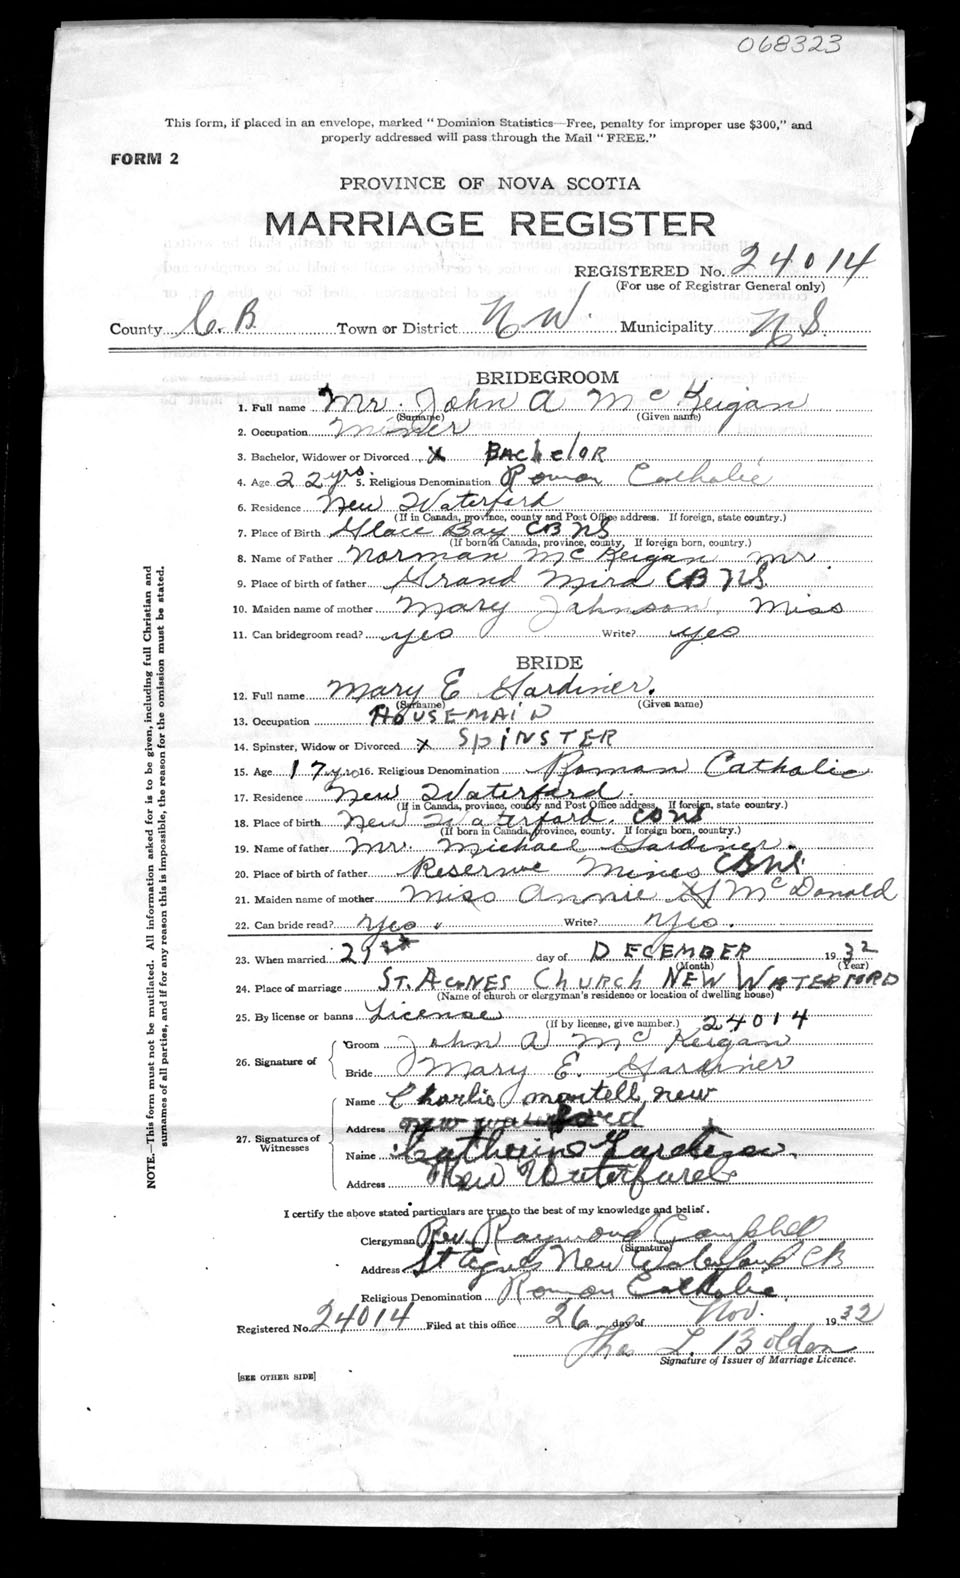 068323
This form, if placed in an envelope, marked "Dominion Statistics—Free, penalty for improper use $300," and
properly addressed will pass through the Mail "FREE."
FORM 2
PROVINCE OF NOVA SCOTIA
MARRIAGE REGISTER
REGISTERED No. 24014
(For use of Registrar General only)
County C.B. Town or District N W. Municipality N S.
BRIDEGROOM
1. Full name Mr. John A McKeigan
(Surname) (Given name)
2. Occupation Miner
3. Bachelor, Widower or Divorced x BAChelOR
4. Age 22 yrs. 5. Religious Denomination Roman Catholic
6. Residence New Waterford
(If in Canada, province, county and Post Office address. If foreign, state country.)
7. Place of Birth Glace Bay CB NS
(If born in Canada, province, county. If foreign born, country.)
8. Name of Father Norman McKeigan Mr.
9. Place of birth of father Grand Mira CB NS.
10. Maiden name of mother Mary Johnson. Miss
11. Can bridegroom read? yes Write? yes
BRIDE
12. Full name Mary E Gardiner.
(Surname) (Given name)
13. Occupation HOUSEMAID
14. Spinster, Widow or Divorced x SpiNSTER
15. Age 17 yrs 16. Religious Denomination Roman Catholic
17. Residence New Waterford.
(If in Canada, province, county and Post Office address. If foreign, state country.)
18. Place of birth New Waterford. CB NS
(If born in Canada, province, county. If foreign born, country.)
19. Name of father Mr. Michael Gardiner.
20. Place of birth of father Reserve Mines CB NS.
21. Maiden name of mother Miss Annie McDonald
22. Can bride read? Yes. Write? Yes.
23. When married 21st day of DECEMBER 1932
(Month) (Year)
24. Place of marriage ST. AGNES CHURCH NEW WATERFORD
(Name of church or clergyman's residence or location of dwelling house)
25. By license or banns License (If by license, give number.) 24014
26. Signature of Groom John A McKeigan
Bride Mary E. Gardiner
27. Signatures of Witnesses Name Charlie mantell new
Address
Name Cathrine
Address New Waterford
I certify the above stated particulars are true to the best of my knowledge and belief.
Clergyman Rev. Raymond Campbell
(Signature)
Address St Agnes New Waterford CB
Religious Denomination Roman Catholic
Registered No. 24014 Filed at this office 26 day of Nov. 1932
Thos L. Bolden
Signature of Issuer of Marriage Licence.
[SEE OTHER SIDE]
NOTE.—This form must not be mutilated. All information asked for is to be given, including full Christian and
surnames of all parties, and if for any reason this is impossible, the reason for the omission must be stated.